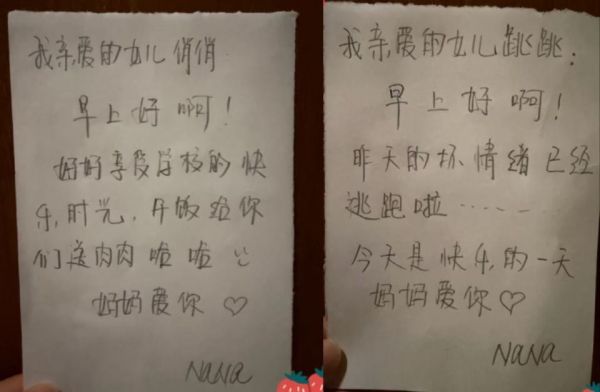 我亲爱的女儿俏俏
早上好啊！
好好享受学校的快
乐,时光，午饭给你
们送肉肉啦啦
妈妈爱你♡
NANA
我亲爱的女儿跳跳：
早上好啊！
昨天的坏情绪已经
逃跑啦……
今天是快乐,的一天
妈妈爱你♡
NANA